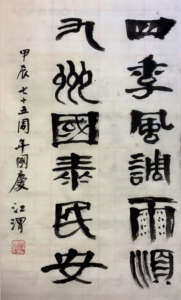 四季風調雨順
九州國泰民安
甲辰七十五周年國慶
江渭